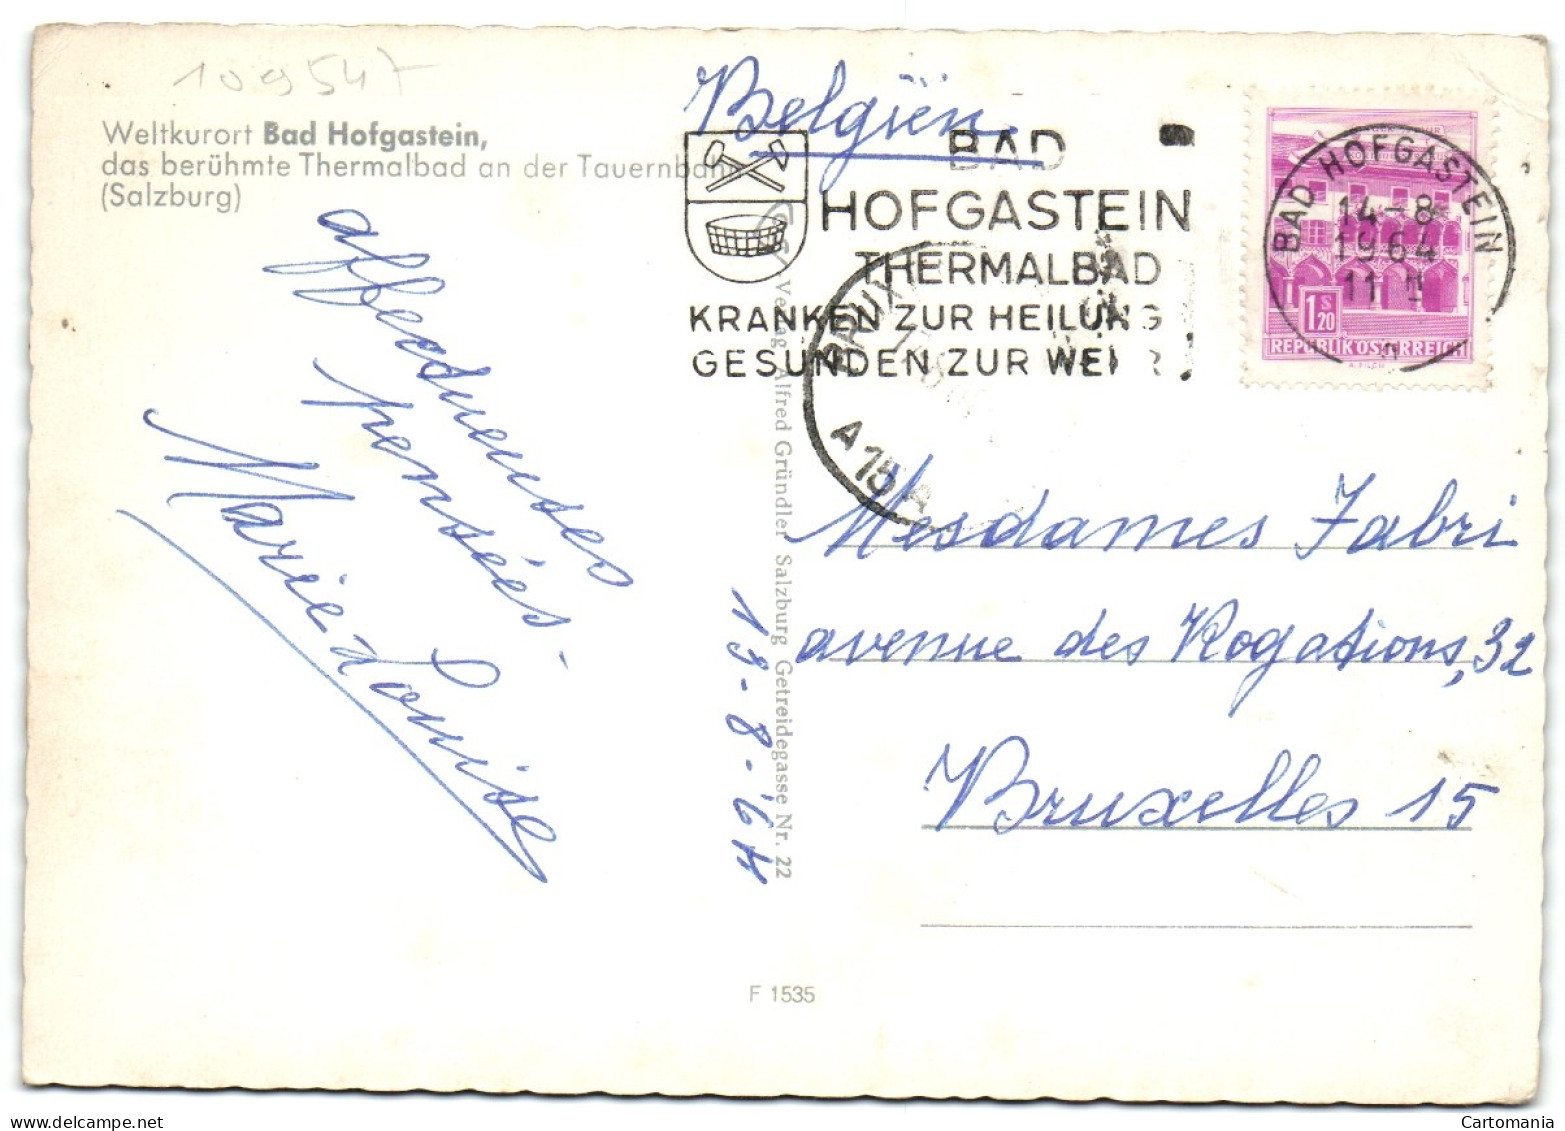 109547
Weltkurort Bad Hofgastein,
das berühmte Thermalbad an der Tauernbahn
(Salzburg)
Belgiën
BAD
HOFGASTEIN
THERMALBAD
KRANKEN ZUR HEILUNG
GESUNDEN ZUR WEHR
BAD HOFGASTEIN
14-8
1964
11
1 S 20
REPUBLIK ÖSTERREICH
BRUX
A 15 A
affectueuses
pensées.
Marie Louise
13-8-64
Verlag Alfred Gründler Salzburg Getreidegasse Nr. 22
Mesdames Fabri
avenue des Rogations, 32
Bruxelles 15
F 1535
delcampe.net
Cartomania